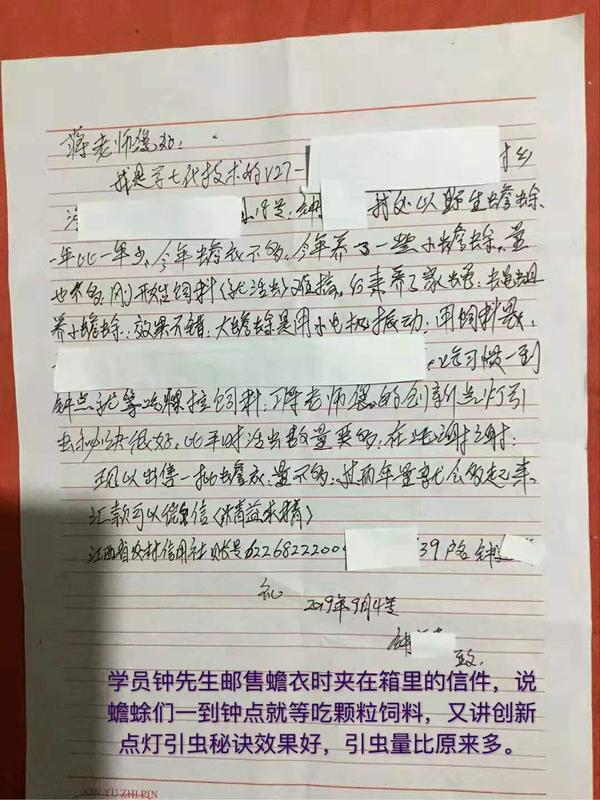 蒋老师您好:
我是学七代技术的V27- 村乡
小17号, 钟 我处以野生蟾蜍
一年比一年少, 今年蟾衣不多, 今年养了一些小蟾蜍, 量
也不多, 刚开始生饲料(找活虫)难搞, 后来养了家蝇,
养小蟾蜍, 效果不错, 大蟾蜍是用小电机振动, 用饲料
习惯一到
钟点就等吃颗粒饲料, 蒋老师 的创新点灯引
虫秘诀很好, 比平时活虫数量要多, 在此谢谢!
现以出售一批蟾衣, 量不多, 过两年量就会多起来。
汇款可以 信《精益求精》
江西省农村信用社 账号6226822200 39户名 钟
礼
2019年9月4号
钟
致
学员钟先生邮售蟾衣时夹在箱里的信件，说
蟾蜍们一到钟点就等吃颗粒饲料，又讲创新
点灯引虫秘诀效果好，引虫量比原来多。
XIN YU ZHI PIN